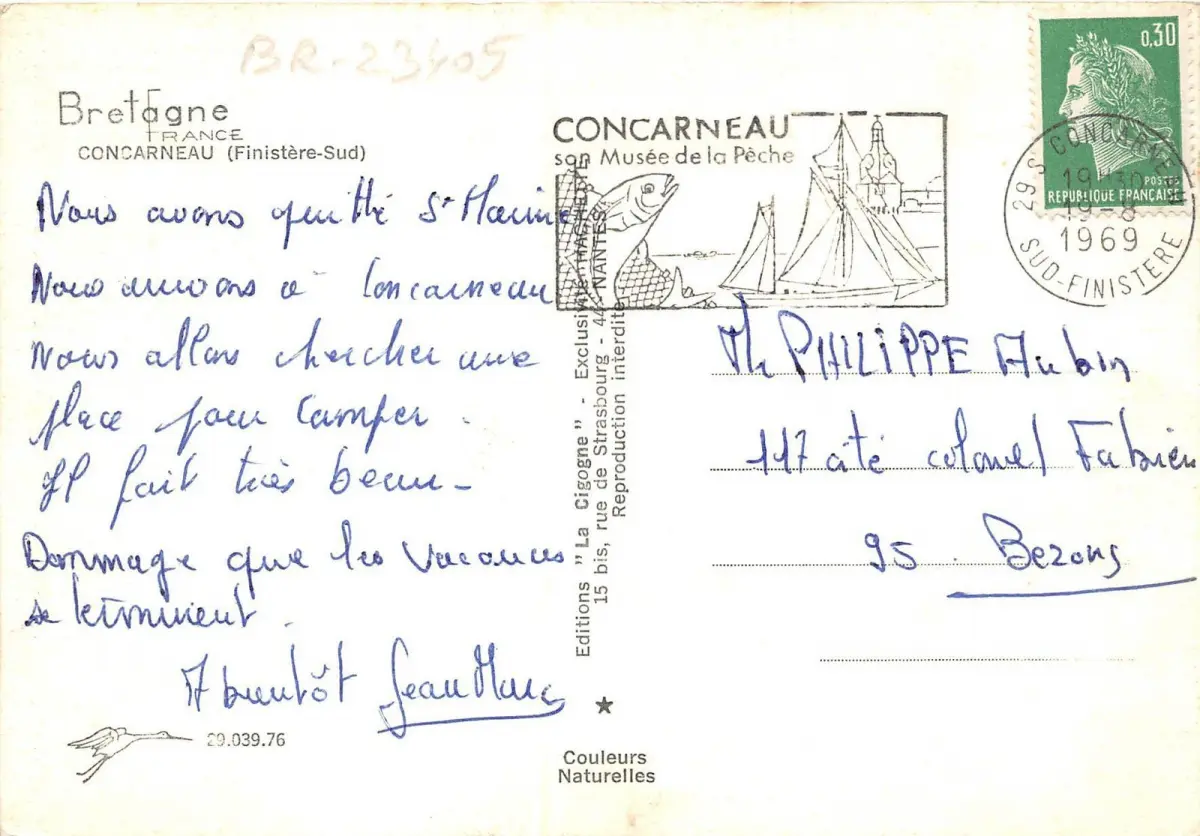 BR-23405
Bretagne
FRANCE
CONCARNEAU (Finistère-Sud)
Nous avons quitté St Marine
Nous arrivons à Concarneau
Nous allons chercher une
place pour camper.
Il fait très beau -
Dommage que les vacances
se terminent.
A bientôt Jean Marc
29.039.76
Editions "La Cigogne" - Exclusivité HACHETTE
15 bis, rue de Strasbourg - 44 - NANTES
Reproduction interdite
Couleurs
Naturelles
CONCARNEAU
son Musée de la Pêche
0,30
POSTES
REPUBLIQUE FRANÇAISE
29 S CONCARNEAU
19H30
19-8
1969
SUD-FINISTERE
PHILIPPE Aubin
117 cité colonel Fabien
95. Bezons